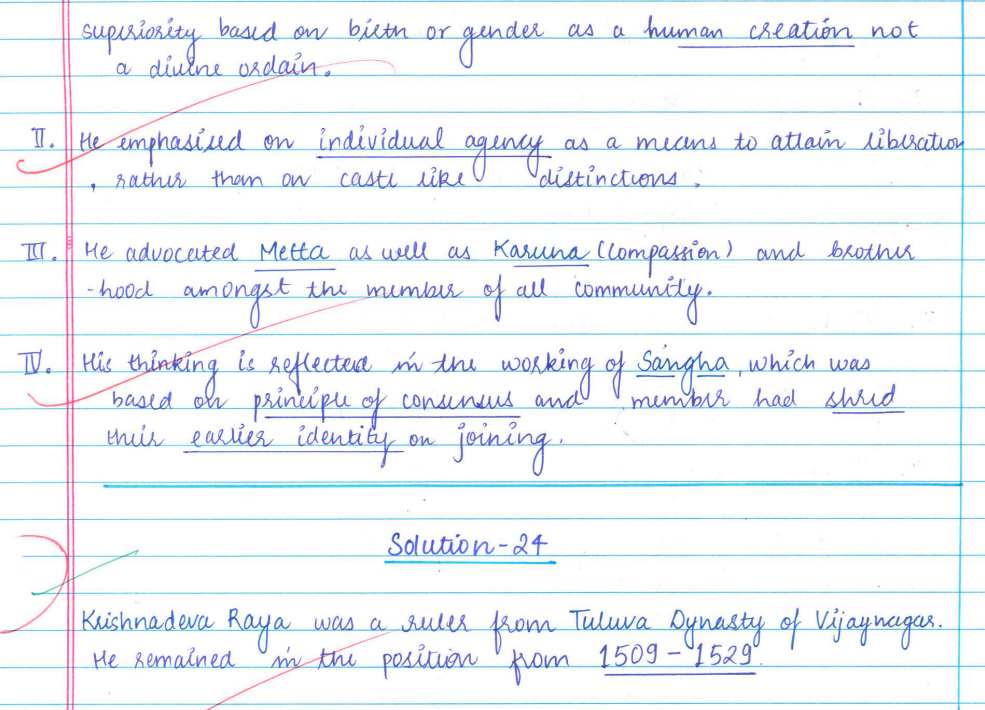 superiority based on birth or gender as a human creation not
a divine ordain.
II. He emphasised on individual agency as a means to attain liberation
, rather than on caste like distinctions.
III. He advocated Metta as well as Karuna (Compassion) and brother
-hood amongst the member of all community.
IV. His thinking is reflected in the working of Sangha, which was
based on principle of consensus and member had shred
their earlier identity on joining.
Solution-24
Krishnadeva Raya was a ruler from Tuluva Dynasty of Vijaynagar.
He remained in the position from 1509-1529.